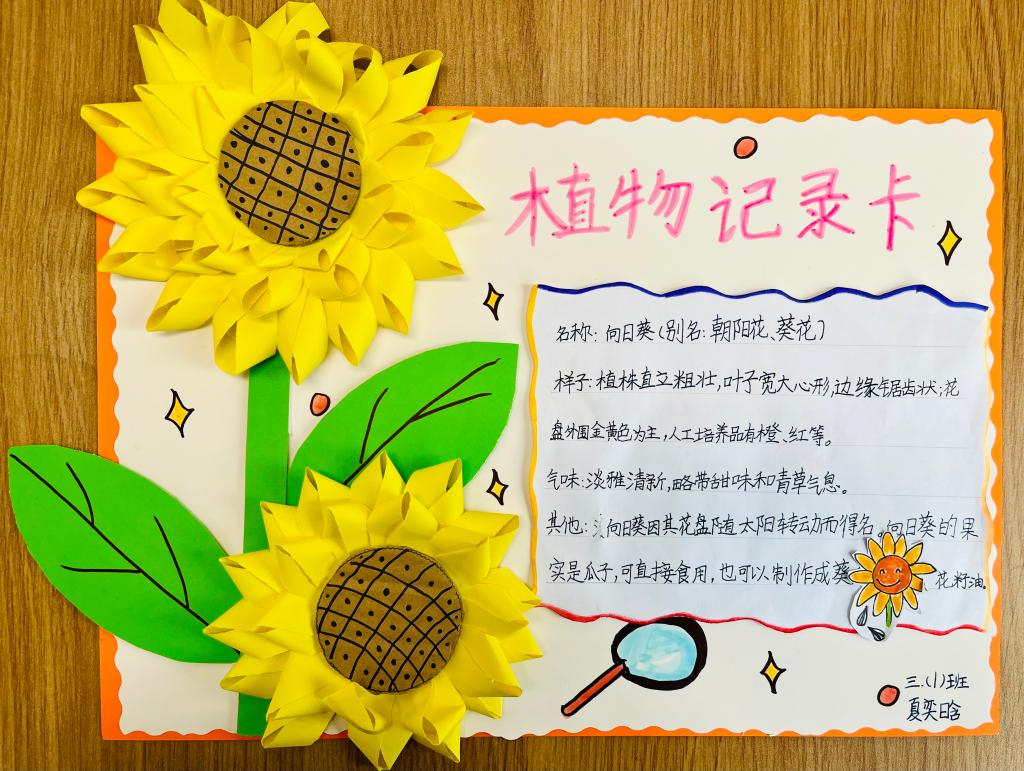 植物记录卡
名称：向日葵（别名：朝阳花、葵花）
样子：植株直立粗壮，叶子宽大心形，边缘锯齿状；花
盘外围金黄色为主，人工培养品有橙、红等。
气味：淡雅清新，略带甜味和青草气息。
其他：向日葵因其花盘随太阳转动而得名。向日葵的果
实是瓜子，可直接食用，也可以制作成葵花籽油。
三（1）班
夏奕晗